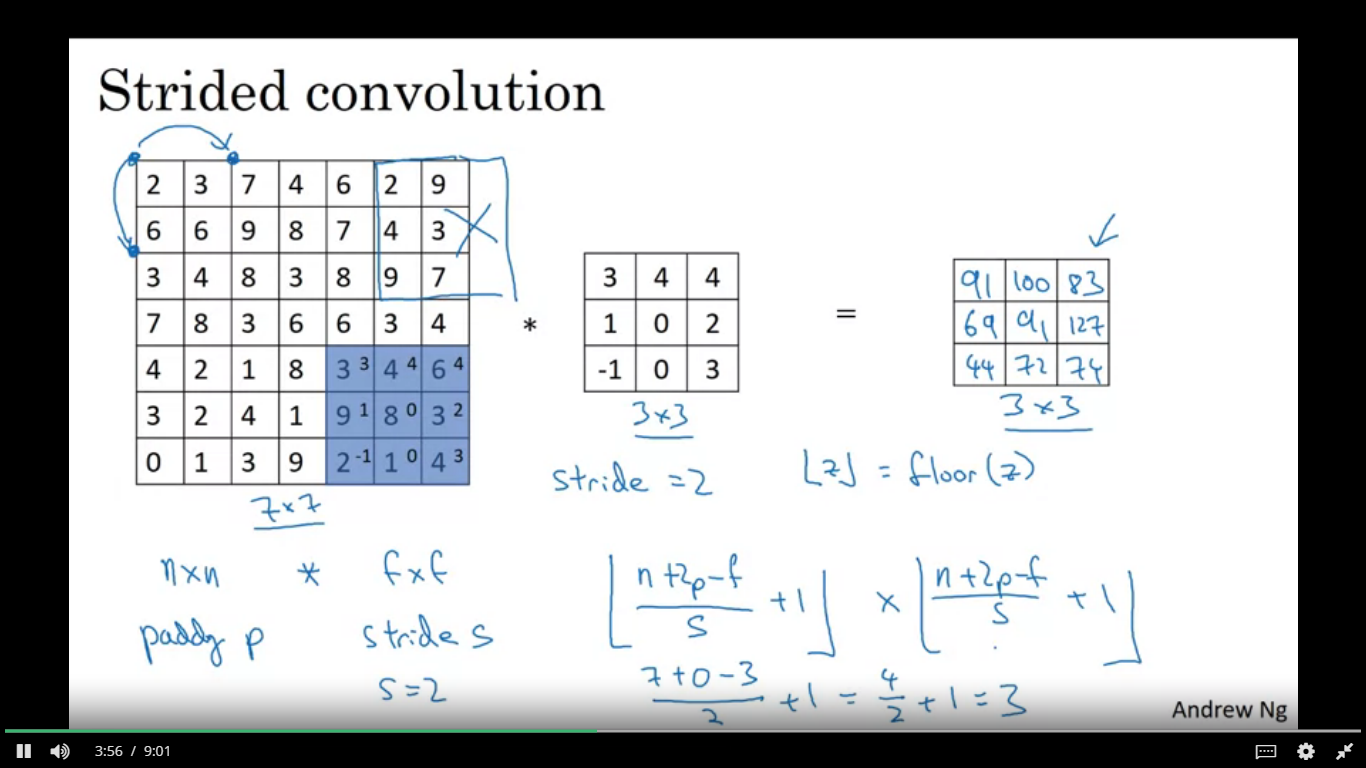 Strided convolution
2 3 7 4 6 2 9
6 6 9 8 7 4 3
3 4 8 3 8 9 7
7 8 3 6 6 3 4
4 2 1 8 3 3 4 4 6 4
3 2 4 1 9 1 8 0 3 2
0 1 3 9 2 -1 1 0 4 3
7×7
*
3 4 4
1 0 2
-1 0 3
3×3
stride = 2
=
91 100 83
69 91 127
44 72 74
3×3
⌊z⌋ = floor(z)
n×n * f×f
padding p stride s
s=2
⌊(n+2p-f)/s + 1⌋ × ⌊(n+2p-f)/s + 1⌋
(7+0-3)/2 + 1 = 4/2 + 1 = 3
Andrew Ng
3:56 / 9:01